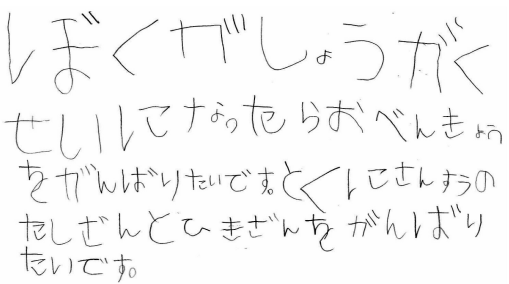 ぼくがしょうがく
せいになったらおべんきょう
をがんばりたいです。とくにさんすうの
たしざんとひきざんをがんばり
たいです。